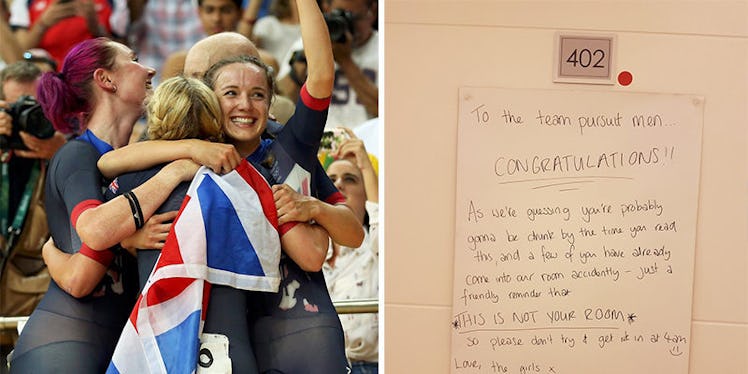 402
To the team pursuit men...
CONGRATULATIONS!!
As we're guessing you're probably
gonna be drunk by the time you read
this, and a few of you have already
come into our room accidently - just a
friendly reminder that
*THIS IS NOT YOUR ROOM*
so please don't try & get in at 4am
Love, the girls x